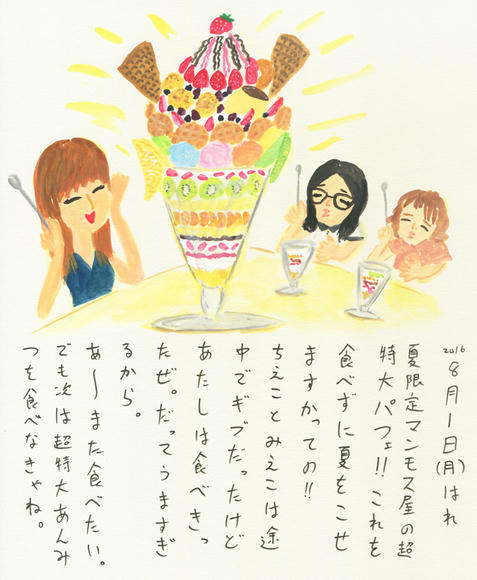 2016 8月1日(月)はれ
夏限定マンモス屋の超
特大パフェ!!これを
食べずに夏をこせ
ますかっての!!
ちえことみえこは途
中でギブだったけど
あたしは食べきっ
たぜ。だってうますぎ
るから。
あ〜また食べたい。
でも次は超特大あんみ
つを食べなきゃね。